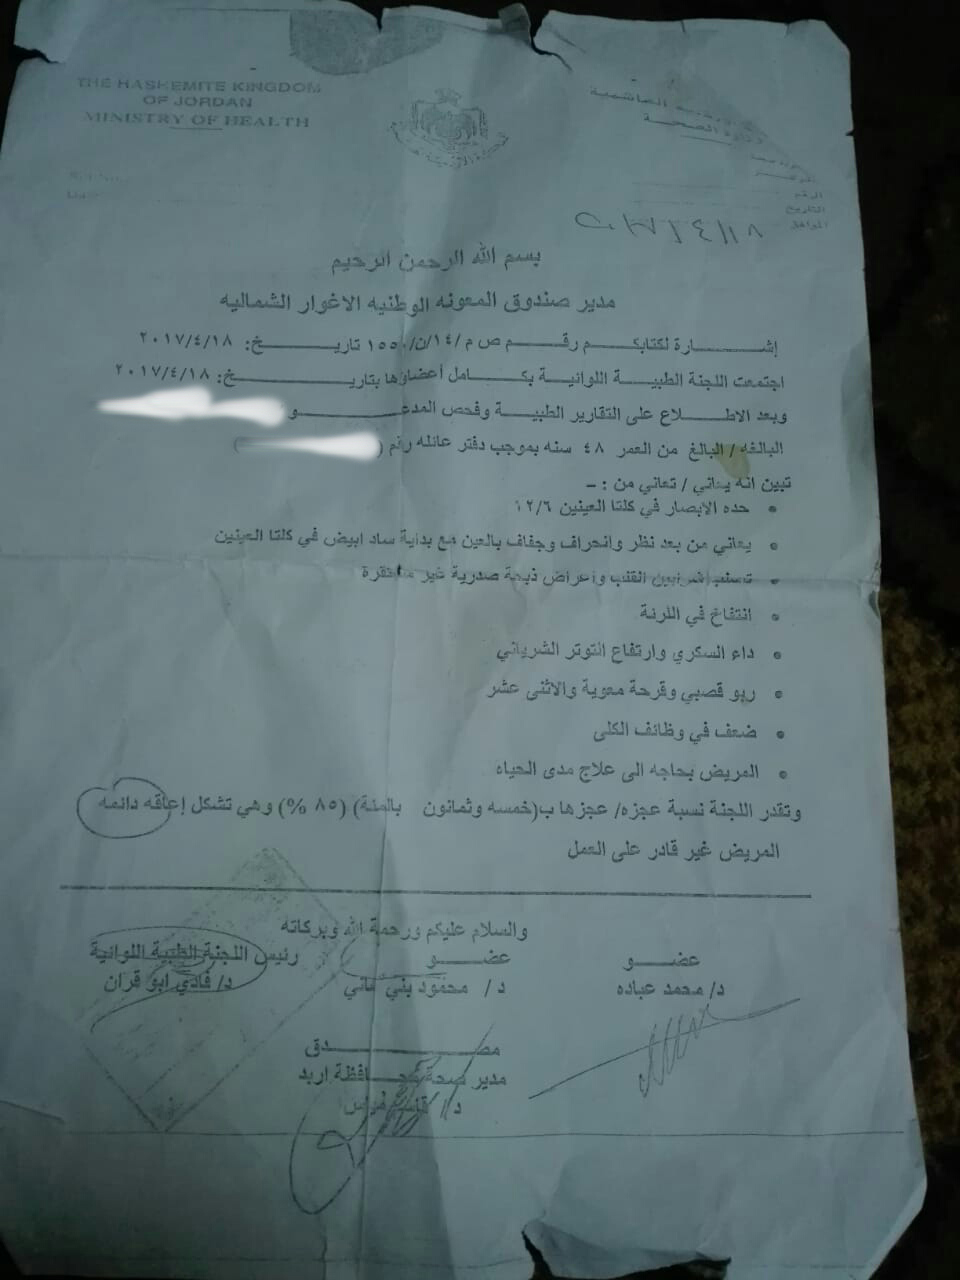 THE HASHEMITE KINGDOM
OF JORDAN
MINISTRY OF HEALTH
الهاشمية
وزارة الصحة
الرقم
التاريخ
الموافق
بسم الله الرحمن الرحيم
مدير صندوق المعونه الوطنيه الاغوار الشماليه
إشارة لكتابكم رقم ص م /١٤/ن/١٥٥٠ تاريخ: ٢٠١٧/٤/١٨
اجتمعت اللجنة الطبية اللوائية بكامل أعضاؤها بتاريخ: ٢٠١٧/٤/١٨
وبعد الاطلاع على التقارير الطبية وفحص المدعو
البالغه / البالغ من العمر ٤٨ سنه بموجب دفتر عائله رقم (
تبين انه يعاني / تعاني من : –
• حده الابصار في كلتا العينين ١٢/٦
• يعاني من بعد نظر وانحراف وجفاف بالعين مع بداية ساد ابيض في كلتا العينين
• تصلب شرايين القلب وأعراض ذبحة صدرية غير مستقرة
• انتفاخ في الرئة
• داء السكري وارتفاع التوتر الشرياني
• ربو قصبي وقرحة معوية والاثنى عشر
• ضعف في وظائف الكلى
• المريض بحاجه الى علاج مدى الحياه
وتقدر اللجنة نسبة عجزه/ عجزها ب(خمسه وثمانون بالمئة) (٨٥ %) وهي تشكل إعاقه دائمه
المريض غير قادر على العمل
والسلام عليكم ورحمة الله وبركاته
عضو عضو رئيس اللجنة الطبية اللوائية
د/ محمد عباده د/ محمود بني هاني د/ فادي ابو قران
مصدق
مدير صحة محافظة اربد
د/ قاسم